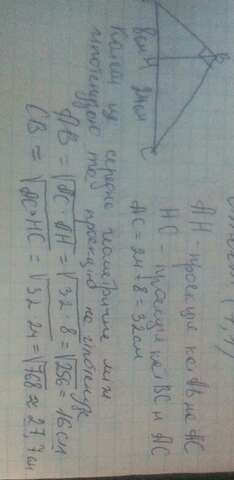 B
8см H 24см
C
AH - проекція кат AB на AC
HC - проекція кат BC и AC
AC = 24 + 8 = 32см
Катет це середнє геометричне між
гіпотенузою та проекцією на гіпотенузу
AB = √AC · AH = √32 · 8 = √256 = 16см
CB = √AC · HC = √32 · 24 = √768 ≈ 27,7см